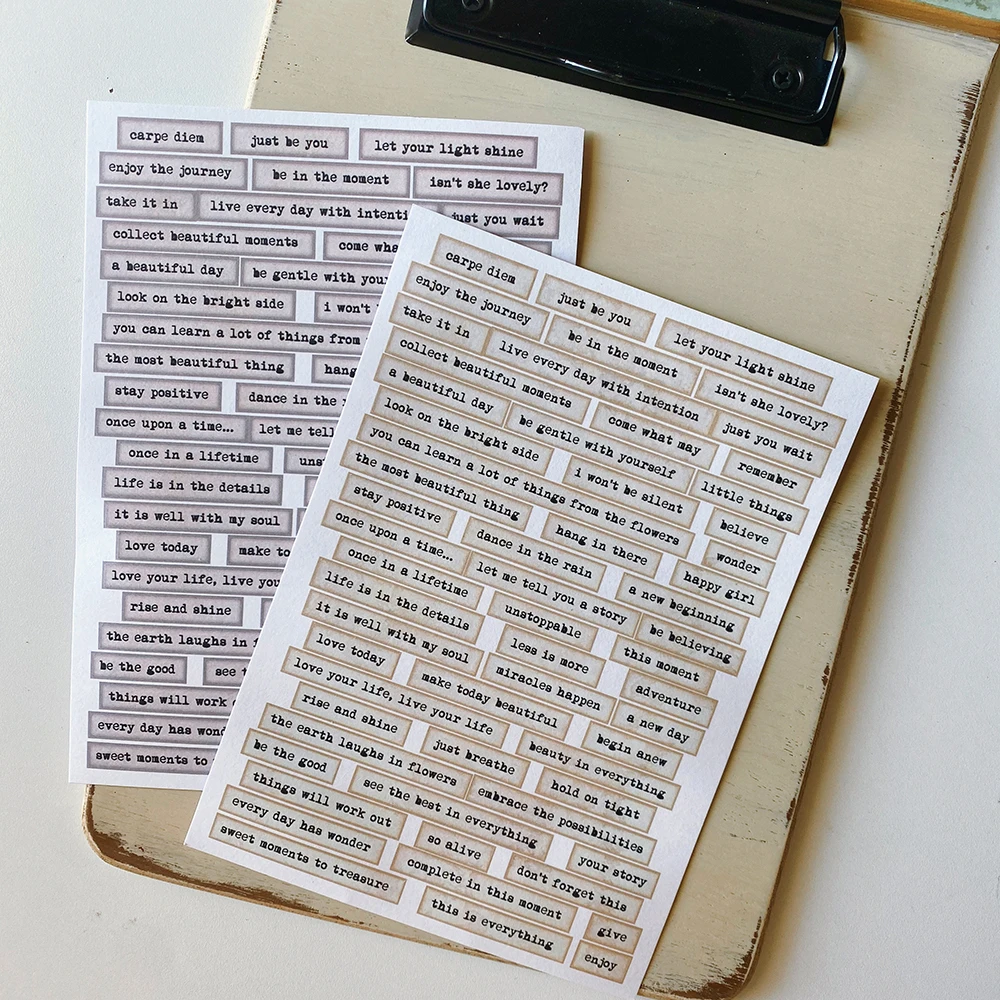 carpe diem just be you let your light shine
enjoy the journey be in the moment isn't she lovely?
take it in live every day with intenti just you wait
collect beautiful moments come wha
a beautiful day be gentle with your
look on the bright side i won't
you can learn a lot of things from
the most beautiful thing hang
stay positive dance in the
once upon a time... let me tell
once in a lifetime uns
life is in the details
it is well with my soul
love today make to
love your life, live you
rise and shine
the earth laughs in
be the good see t
things will work
every day has wond
sweet moments to
carpe diem just be you let your light shine
enjoy the journey be in the moment isn't she lovely?
take it in live every day with intention just you wait
collect beautiful moments come what may remember
a beautiful day be gentle with yourself little things
look on the bright side i won't be silent believe
you can learn a lot of things from the flowers wonder
the most beautiful thing hang in there happy girl
stay positive dance in the rain a new beginning
once upon a time... let me tell you a story be believing
once in a lifetime unstoppable this moment
life is in the details less is more adventure
it is well with my soul miracles happen a new day
love today make today beautiful begin anew
love your life, live your life beauty in everything
rise and shine just breathe hold on tight
the earth laughs in flowers embrace the possibilities
be the good see the best in everything your story
things will work out so alive don't forget this
every day has wonder complete in this moment give
sweet moments to treasure this is everything enjoy